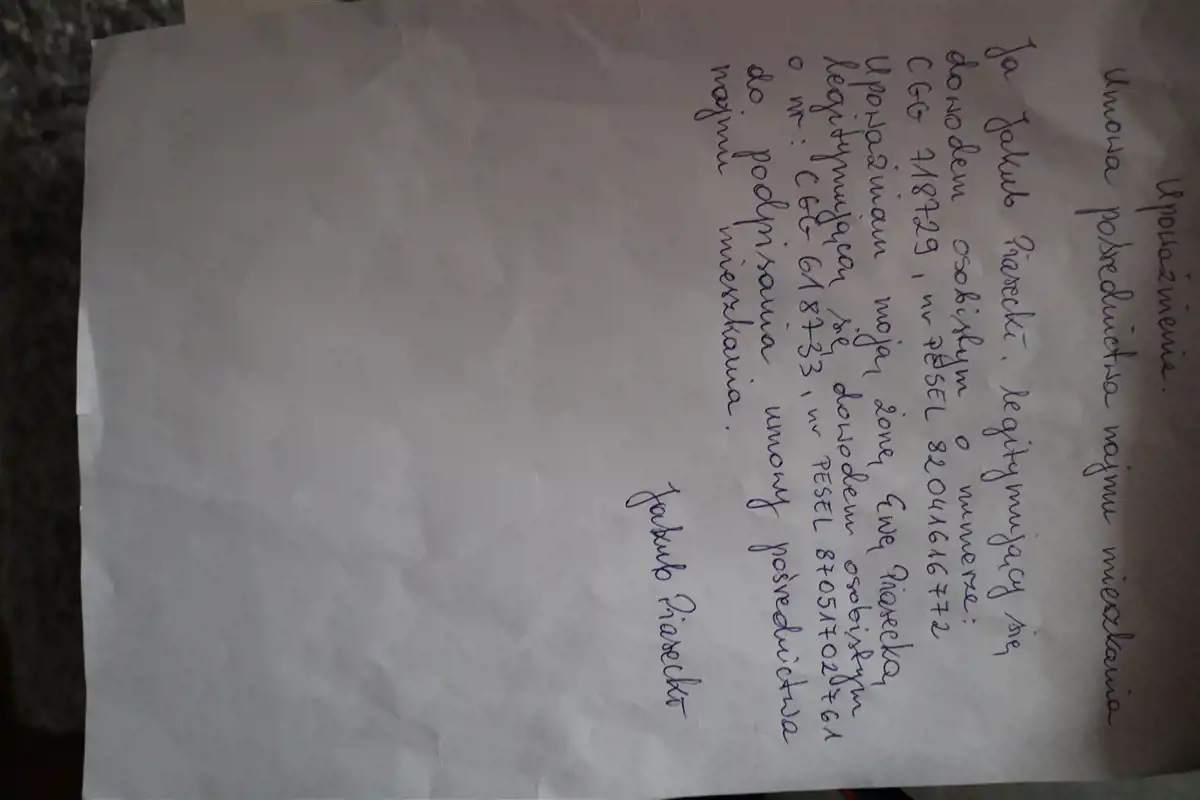 Upoważnienie.
Umowa pośrednictwa najmu mieszkania
Ja Jakub Piasecki, legitymujący się
dowodem osobistym o numerze:
CGG 718729, nr PESEL 82041616772
Upoważniam moją żonę Ewę Piasecką,
legitymującą się dowodem osobistym
o nr: CGG 618733, nr PESEL 87051702761
do podpisania umowy pośrednictwa
najmu mieszkania.
Jakub Piasecki